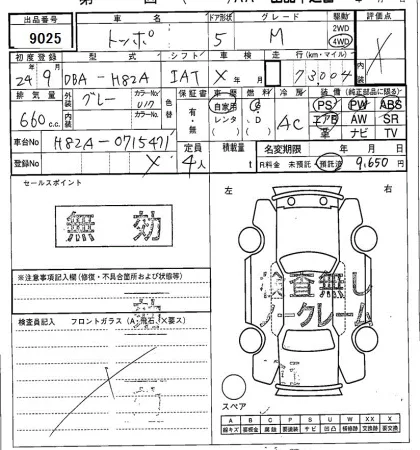 出品番号 車名 ドア形状 グレード 駆動 評価点
9025 トッポ 5 M 2WD 4WD X
初度登録 型式 シフト 車検 走行(km・マイル)
24年9月 DBA-H82A IAT X年 月 73,004
排気量 外装 グレー カラーNo. U17 色替 保証書 車歴 燃料 冷房 装備(純正部品に限る)
660c.c. 内装 カラーNo. 有・無 自家用 レンタ G D AC PS PW ABS
エアB AW SR
革 ナビ TV
車台No H82A-0715471 定員 積載量 名変期限 年 月 日
登録No X 4人 t R料金 未預託・預託済 9,650円
セールスポイント
左 右
無効
※注意事項記入欄(修復・不具合箇所および状態等)
検査無し
ノークレーム
検査員記入 フロントガラス(A・飛石、X要ス)
スペア
A B C P S U W X XX
線キズ 要板金 腐蝕 要塗装 サビ 凹凸 補修跡 要交換 交換跡